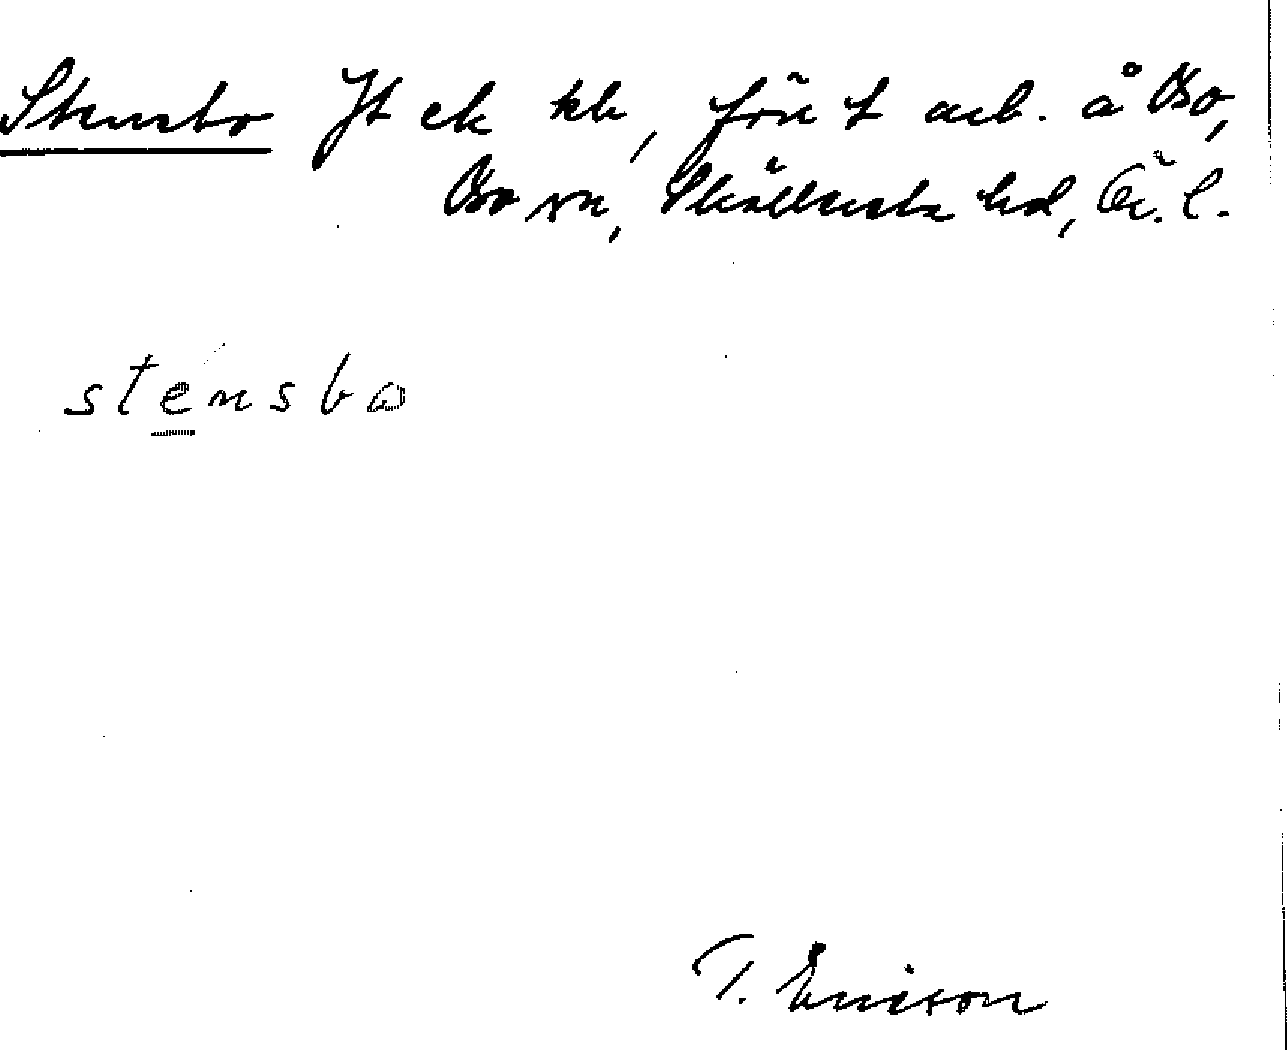 Stensbo Jt ek kb, förut arb. å Bo,
Bo sn, Skällersta hd, Ör. l.
stensbω
T. Ericson